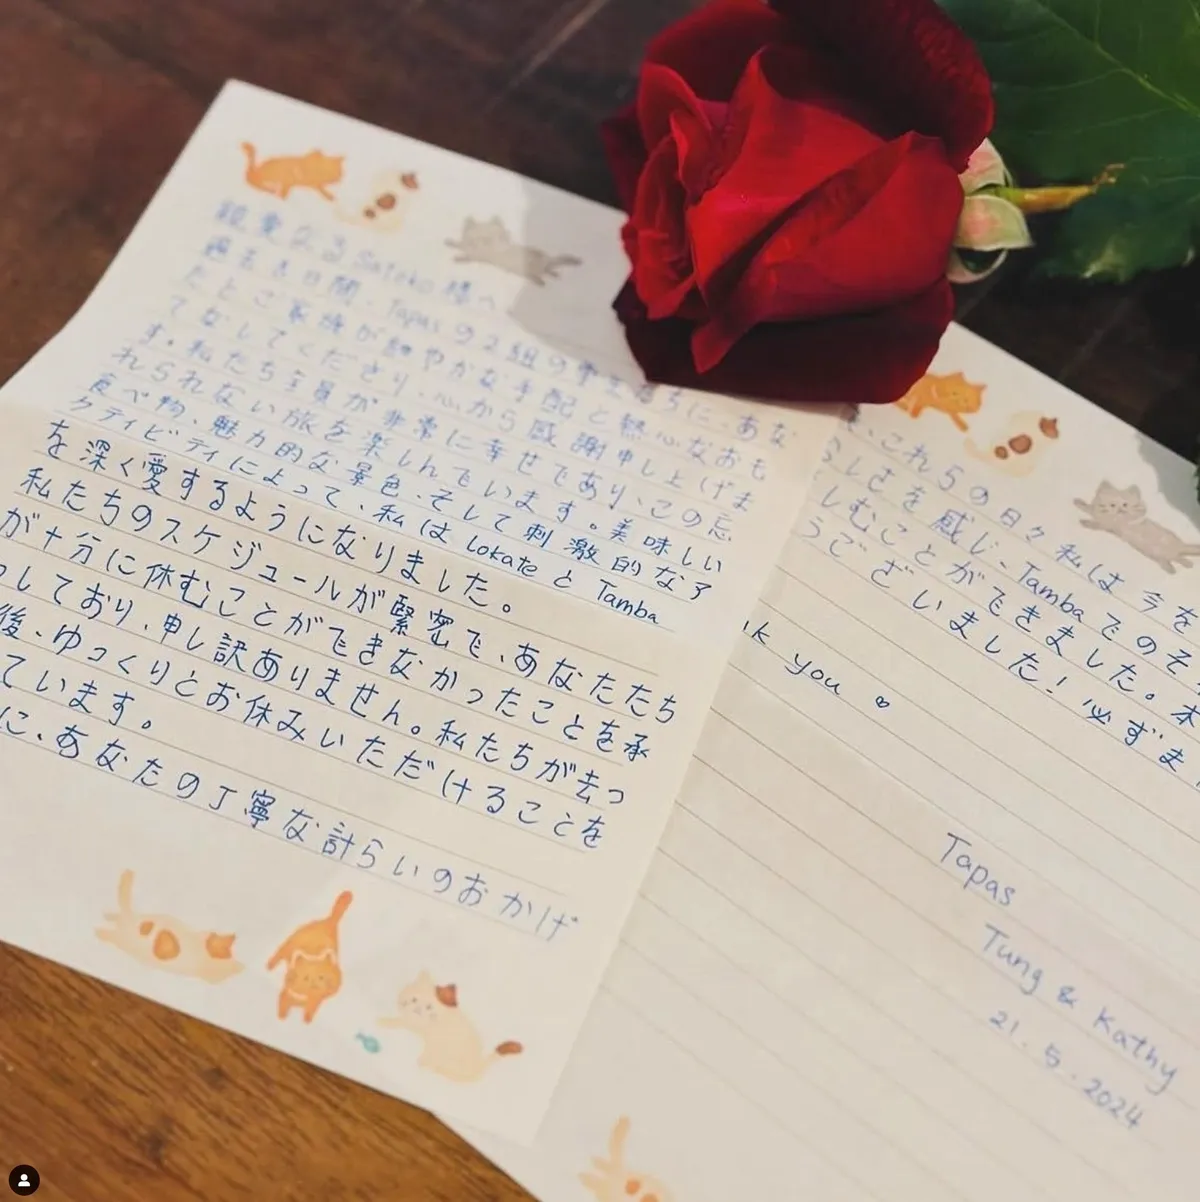 親愛なるSatoko様へ
過去5日間、Tapasの2組の
たとご家族が細やかな手配と熱心なおも
てなしてくださり、心から感謝申し上げま
す。私たち全員が非常に幸せであり、この忘
れられない旅を楽しんでいます。美味しい
食べ物、魅力的な景色、そして刺激的なア
クティビティによって、私はLokateとTamba
を深く愛するようになりました。
私たちのスケジュールが緊密で、あなたたち
が十分に休むことができなかったことを承
しており、申し訳ありません。私たちが去っ
後、ゆっくりとお休みいただけることを
ています。
に、あなたの丁寧な計らいのおかげ
、これらの日々私は今を
らしさを感じ、Tambaでのそ
しむことができました。本
うございました！必ずま
you ♡
Tapas
Tung & Kathy
21.5.2024